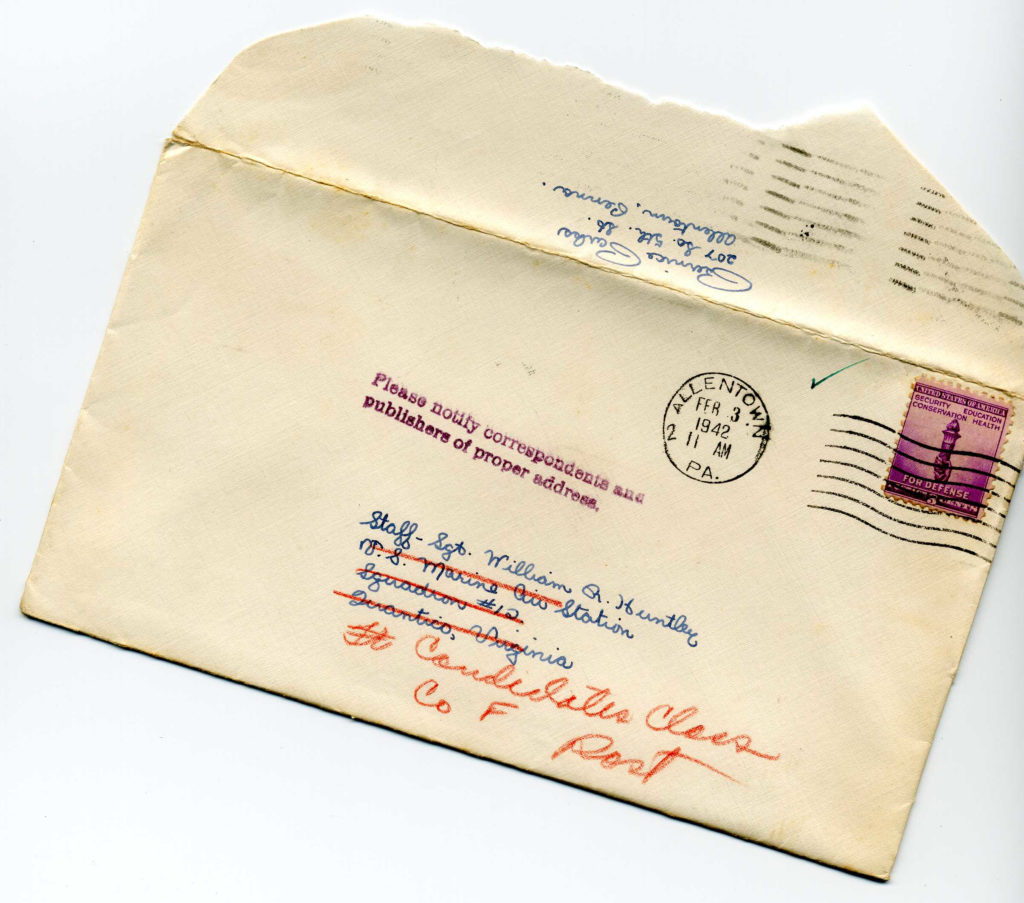 Bernice Parks
207 So. 5th. St.
Allentown, Penna.
Please notify correspondents and
publishers of proper address.
ALLENTOWN
FEB 3.
1942
2 11 AM
PA.
UNITED STATES OF AMERICA
SECURITY EDUCATION
CONSERVATION HEALTH
FOR DEFENSE
Staff-Sgt. William R. Huntley
U.S. Marine Air Station
Squadron #12
Quantico, Virginia
Candidates Class
Co F
Post